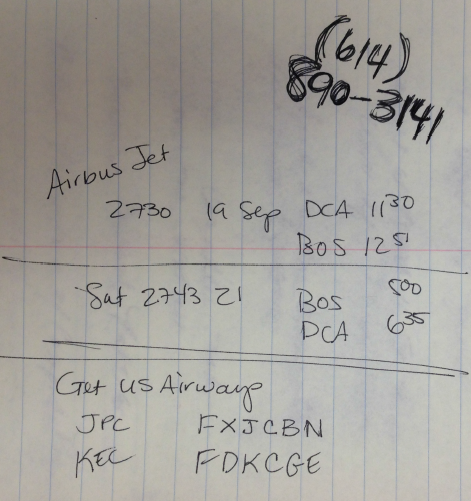 (614)
890-3141
Airbus Jet
2730 19 Sep DCA 11 30
BOS 12 51
Sat 2743 21 BOS 500
DCA 6 35
Get US Airways
JPC FXJCBN
KEC FDKCGE